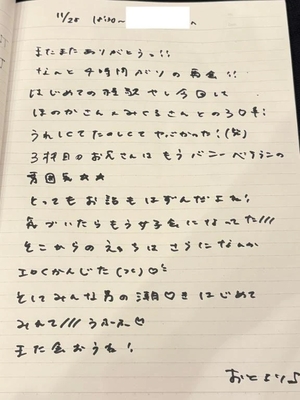 11/28 18:30〜 へ
またまたありがとうっ!!
なんと4時間ぶりの再会!!
はじめての経験やし今回して
ほのかさんとみくるさんとの3P!
うれしくてたのしくてやばかった!(笑)
3枚目のお兄さんはもうバニーベテランの
雰囲気☆☆
とってもお話もはずんだよね!
気づいたらもう女子会になってた///
そこからのえっちはさらになんか
エロくかんじた(>ε)♡
そしてみんな男の潮♡きはじめて
みれて///うふふ♡
また会おうね!
おとより♪